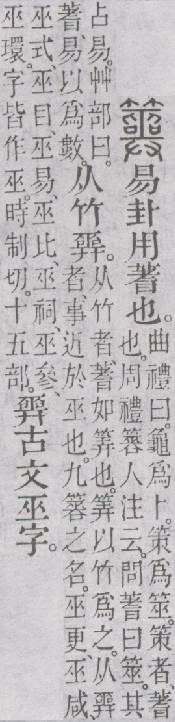 易卦用蓍也。
曲禮曰。龜爲卜。策爲筮。策者、蓍
也。周禮簭人注云。問蓍曰筮。其
占易。艸部曰。
蓍、易以爲數。
从竹𢍮。
从竹者、蓍如筭也。筭以竹爲之。从𢍮
者、事近於巫也。九簭之名。巫更、巫咸、
巫式、巫目、巫易、巫比、巫祠、巫參、
巫環。字皆作巫。時制切。十五部。
𢍮古文巫字。